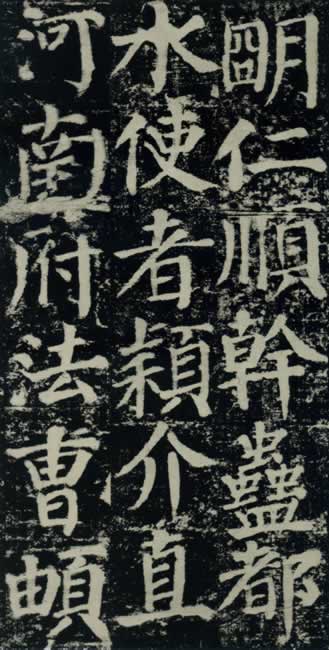 朙仁順幹蠱都
水使者穎介直
河南府法曹頔